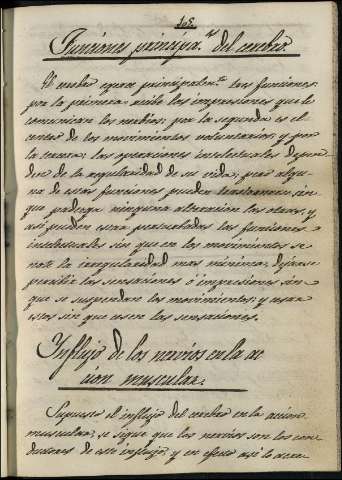 108.
Funciones principa.s del cerebro.
El cerebro egerce principalm.te tres funciones:
por la primera recibe los impresiones que le
comunican los nerbios; por la segunda es el
centro de los movimientos voluntarios; y por
la tercera; las operaciones intelectuales depen-
den de la regularidad de su vida, pero algu-
na de estas funciones pueden trastornarse sin
que padezca ninguna alteracion las otras, y
asi pueden estar perturbadas las funciones
intelectuales sin que en los movimientos se
note la irregularidad mas minima; dejarse
percibir las sensaciones ó impresiones sin
que se suspendan los movimientos; y estar
estos sin que esten las sensaciones.
Influjo de los nervios en la ac
cion muscular.
Supuesto el influjo del cerebro en la accion
muscular, se sigue que los nervios son los con-
ductores de este influjo, y en efecto asi lo acre-